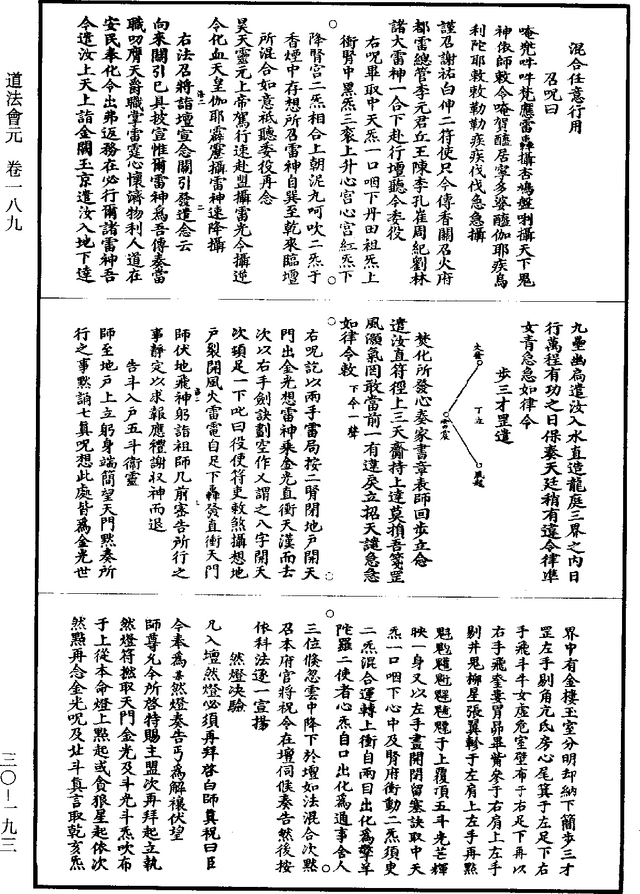 道法會元　卷一八九
三〇—一九三
混合任意行用
召呪曰
唵㘕吽吽梵應雷轟攝杏鳩盤唎攝天下鬼
神依師敕令唵賀醯居寧多婆醯伽耶疾鳥
利陀耶敕敕勒勒疾疾伐伐急急攝
謹召謝祐白仲二符使只令傳香關召火府
都雷總管李元君丘王陳李孔崔周紀劉林
諸大雷神一合下赴行壇聽令委役
右呪畢取中天炁一口咽下丹田祖炁上
衝腎中黑炁三衮上升心宮心宮紅炁下
降腎宮二炁相合上朝泥九呵吹二炁于
香煙中存想所召雷神自巽至乾來臨壇
所混合如意祇聽委役再念
昊天靈元上帝駕行速赴盟攝雷光令攝逆
令化血天皇伽耶霹靂攝雷神速降攝
右法召將詣壇宣念關引發遣念云
向來關引已具披宣惟爾雷神爲吾傳奏當
職叨膺天爵職掌雷霆心懷濟物利人道在
安民奉化令出弗返務在必行爾諸雷神吾
令遣汝上天上詣金闕玉京遣汝入地下達
九壘幽扃遣汝入水直造龍庭三界之內日
行萬程有功之日保奏天廷稍有違令律準
女青急急如律令
步三才罡遣
焚化所發心奏家書章表師回步立念
遣汝直符徑上三天齎持上達莫損吾箋罡
風灝氣罔敢當前一有違戾立招天譴急急
如律令敕下令一聲
右呪訖以兩手雷局按二腎閉地戶開天
門出金光想雷神乘金光直衝天漢而去
次以右手劍訣劃空作乂謂之八字開天
次頭足一下叱曰役使符吏敕煞攝想地
戶裂開風火雷電自足下轟發直衝天門
師伏地飛神躬詣祖師几前密告所行之
事靜定以求報應禮謝收神而退
告斗入戶五斗衞靈
師至地戶上立躬身端簡望天門默奏所
行之事默誦七真呪想此處皆爲金光世
界中有金樓玉室分明却納下簡步三才
罡左手剔角亢氐房心尾箕于左足下右
手飛斗牛女虛危室壁布于右足下再以
右手飛奎婁胃昴畢觜參于右肩上左手
剔井鬼柳星張翼軫于左肩上左手再點
于上覆頂五斗光芒輝
映一身又以左手畫開閉留塞訣取中天
炁一口咽下心中及腎府衝動二炁須臾
二炁混合運轉上衝自兩目出化爲擎羊
陀羅二使者心炁自口出化爲通事舍人
三位倏忽雲中降下於壇如法混合次默
召本府官將祝令在壇伺候奏告然後按
依科法逐一宣揚
然燈決驗
凡入壇然燈必須再拜啓白師真祝曰臣
今奉爲某然燈奏告丐爲解禳伏望
師尊允令所啓特賜主盟次再拜起立執
然燈符撚取天門金光及斗光斗炁吹布
于上從本命燈上點起或貪狼星起依次
然點再念金光呪及北斗真言取乾亥炁